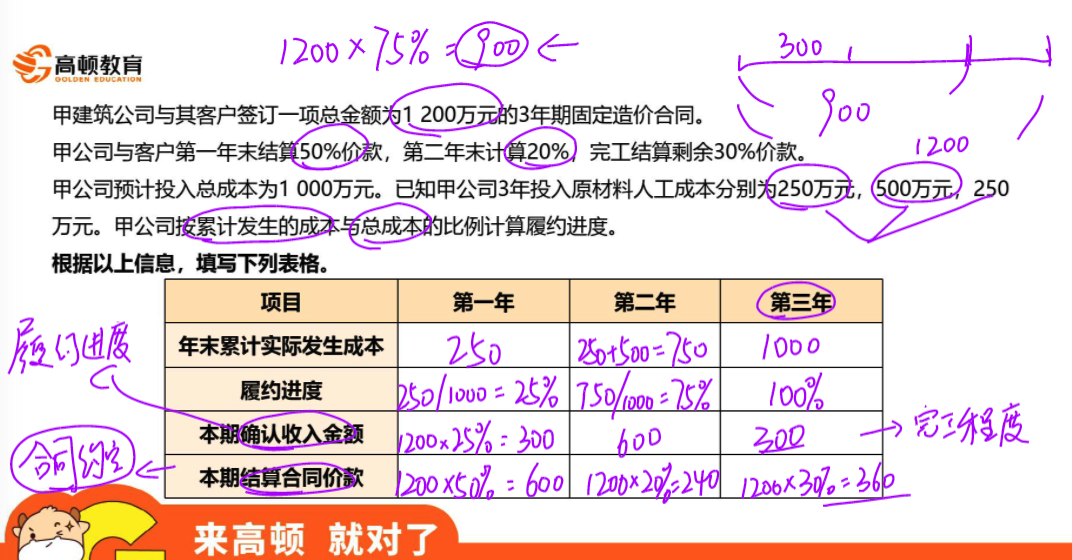 1200×75%=900 ←
300
900
1200
高顿教育
GOLDEN EDUCATION
甲建筑公司与其客户签订一项总金额为1 200万元的3年期固定造价合同。
甲公司与客户第一年末结算50%价款，第二年末计算20%，完工结算剩余30%价款。
甲公司预计投入总成本为1 000万元。已知甲公司3年投入原材料人工成本分别为250万元，500万元，250
万元。甲公司按累计发生的成本与总成本的比例计算履约进度。
根据以上信息，填写下列表格。
项目 第一年 第二年 第三年
年末累计实际发生成本 250 250+500=750 1000
履约进度
履约进度 250/1000=25% 750/1000=75% 100%
本期确认收入金额 1200×25%=300 600 300 → 完工程度
合同约定 ← 本期结算合同价款 1200×50%=600 1200×20%=240 1200×30%=360
来高顿 就对了